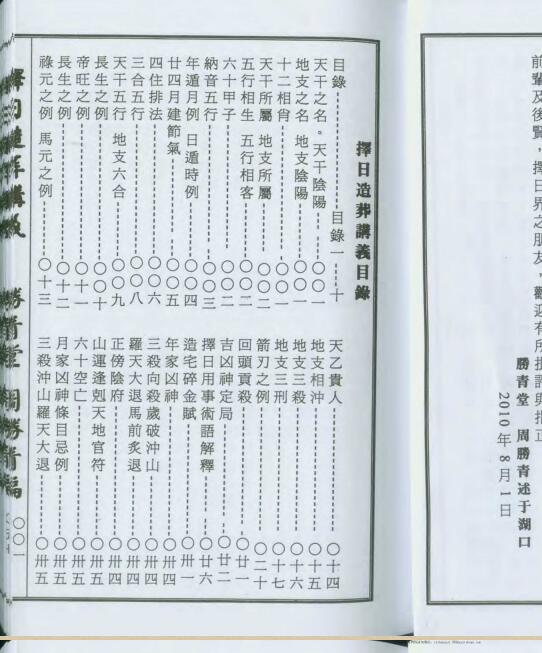 前輩及後賢，擇日界之朋友，歡迎有所批評與指正
勝青堂　周勝青述于湖口
2010年8月1日
擇日造葬講義目錄
目錄　目錄一　十
天干之名。天干陰陽　○○一
地支之名　地支陰陽　○○一
十二相肖　○○一
天干所屬　地支所屬　○○二
五行相生　五行相客　○○二
六十甲子　○○二
納音五行　○○三
年遁月例　日遁時例　○○四
廿四月建節氣　○○五
四住排法　○○六
三合五行　○○八
天干五行　地支六合　○○九
長生之例　○○十
帝旺之例　○十一
長生之例　○十二
祿元之例　馬元之例　○十三
天乙貴人　○十四
地支相沖　○十五
地支三殺　○十六
地支三刑　○十七
箭刃之例　○二十
回頭貢殺　○廿一
吉凶神定局　○廿二
擇日用事術語解釋　○廿六
造宅碎金賦　○卅一
年家凶神　○卅四
三殺向殺歲破沖山　○卅四
羅天大退馬前炙退　○卅四
正傍陰府　○卅四
山運逢剋天地官符　○卅五
六十空亡　○卅五
月家凶神條目忌例　○卅五
三殺沖山羅天大退　○卅五
勝青堂　周勝青編
○○一